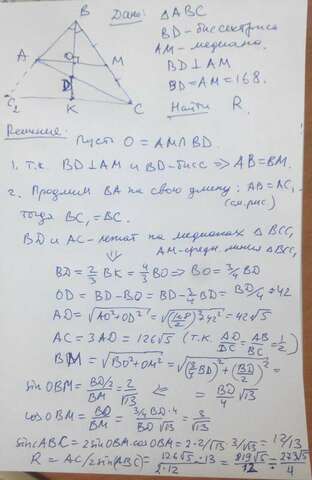 B
Дано: △ABC
BD - биссектриса
AM - медиана.
BD ⊥ AM
BD = AM = 168.
Найти R.
A
O
M
D
C₂
K
C
Решение:
Пусть O = AM ∩ BD.
1. т.к. BD ⊥ AM и BD - бисс ⇒ AB = BM.
2. Продлим BA на свою длину: AB = AC₁ -
(см. рис)
тогда BC₁ = BC.
BD и AC - лежат на медианах △BCC₁
AM - средн. линия △BCC₁
⇓
BD = 2/3 BK = 4/3 BO ⇒ BO = 3/4 BD
OD = BD - BO = BD - 3/4 BD = BD/4 = 42
AD = √(AO² + OD²) = √((168/2)² + 42²) = 42√5
AC = 3AD = 126√5 (т.к. AD/DC = AB/BC = 1/2)
BM = √(BO² + OM²) = √((3/4 BD)² + (BD/2)²) =
sin OBM = (BD/2)/BM = 2/√13
= BD/4 √13
cos OBM = BO/BM = (3/4 BD·4)/(BD√13) = 3/√13
sin(ABC) = 2 sin OBM · cos OBM = 2·2/√13·3/√13 = 12/13
R = AC/2sin(ABC) = (126√5)/(2·12) · 13 = 819√5/12 = 273√5/4